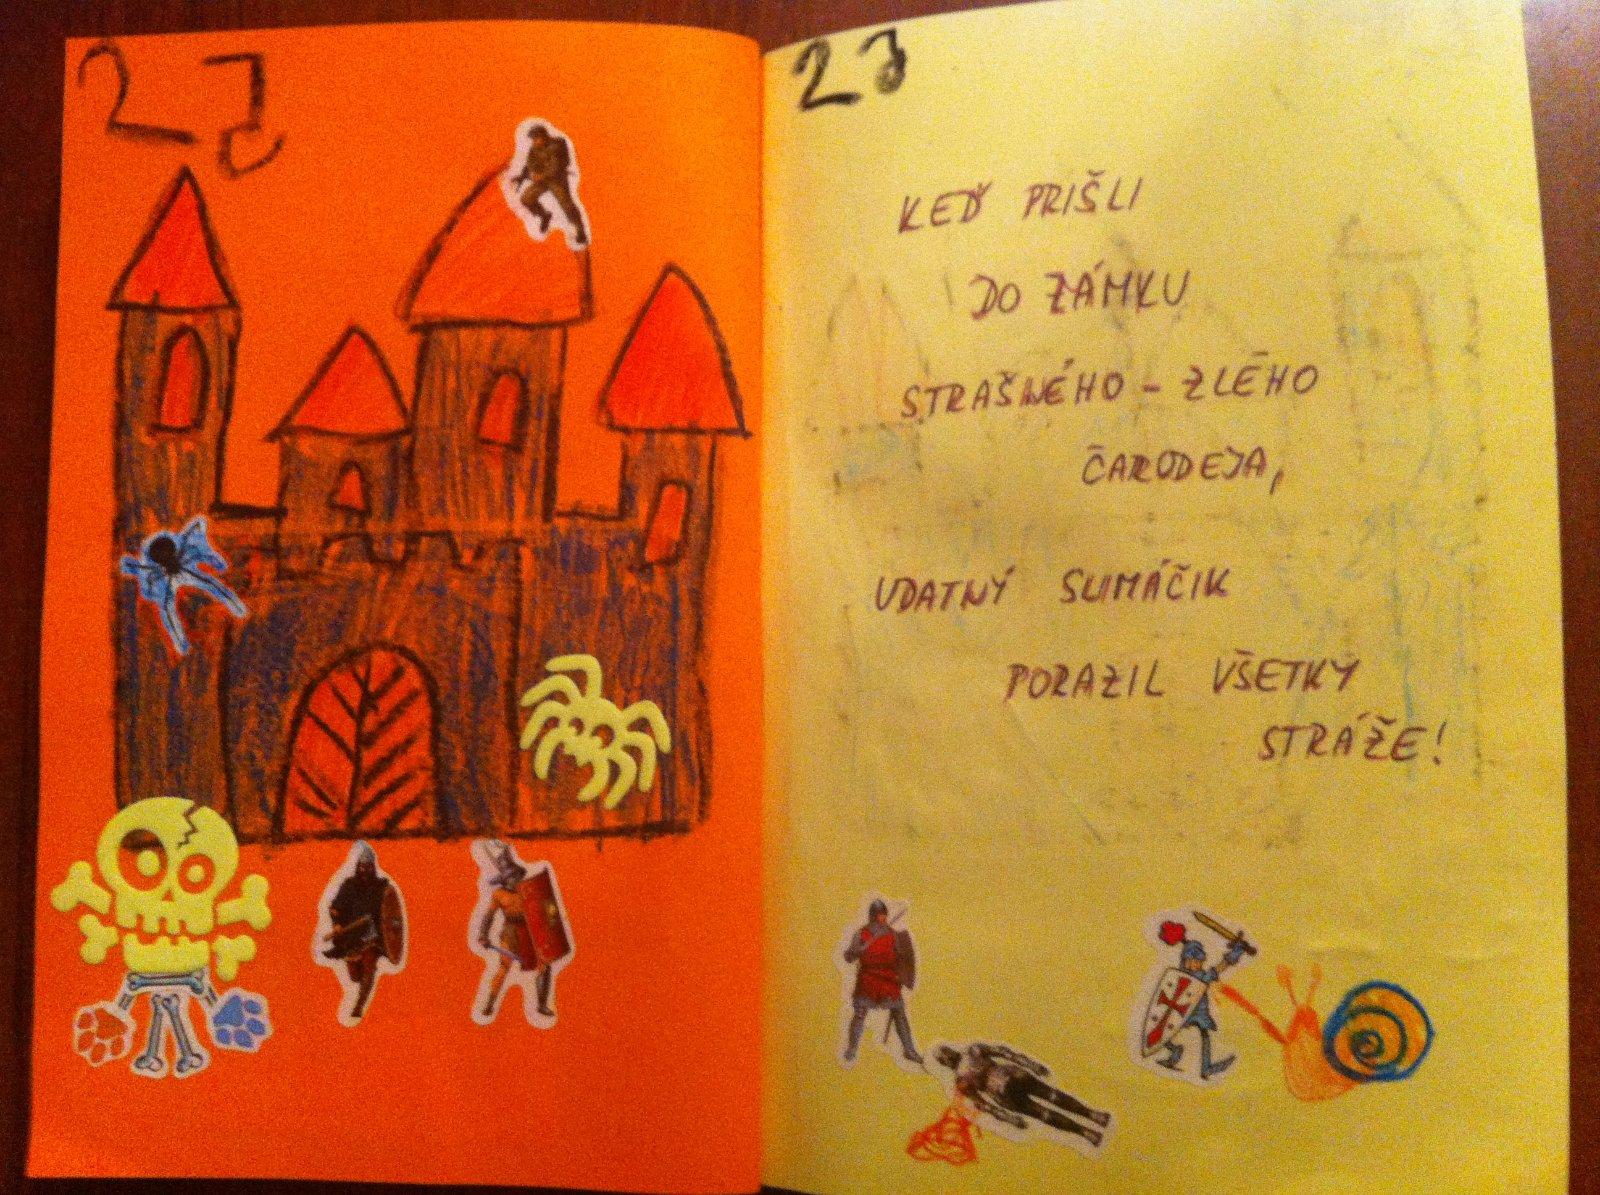 KEĎ PRIŠLI
DO ZÁMKU
STRAŠNÉHO - ZLÉHO
ČARODEJA,
UDATNÝ SLIMÁČIK
PORAZIL VŠETKY
STRÁŽE!